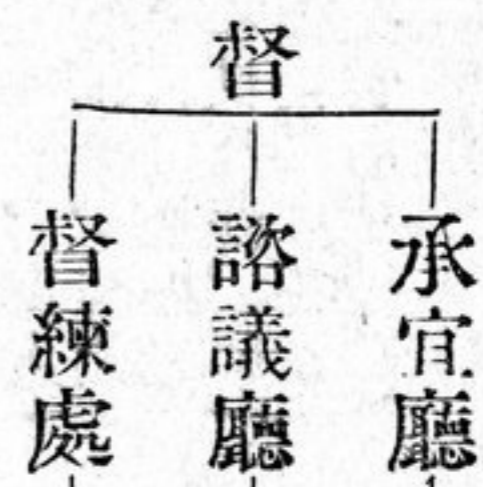 督
承宣廳
諮議廳
督練處